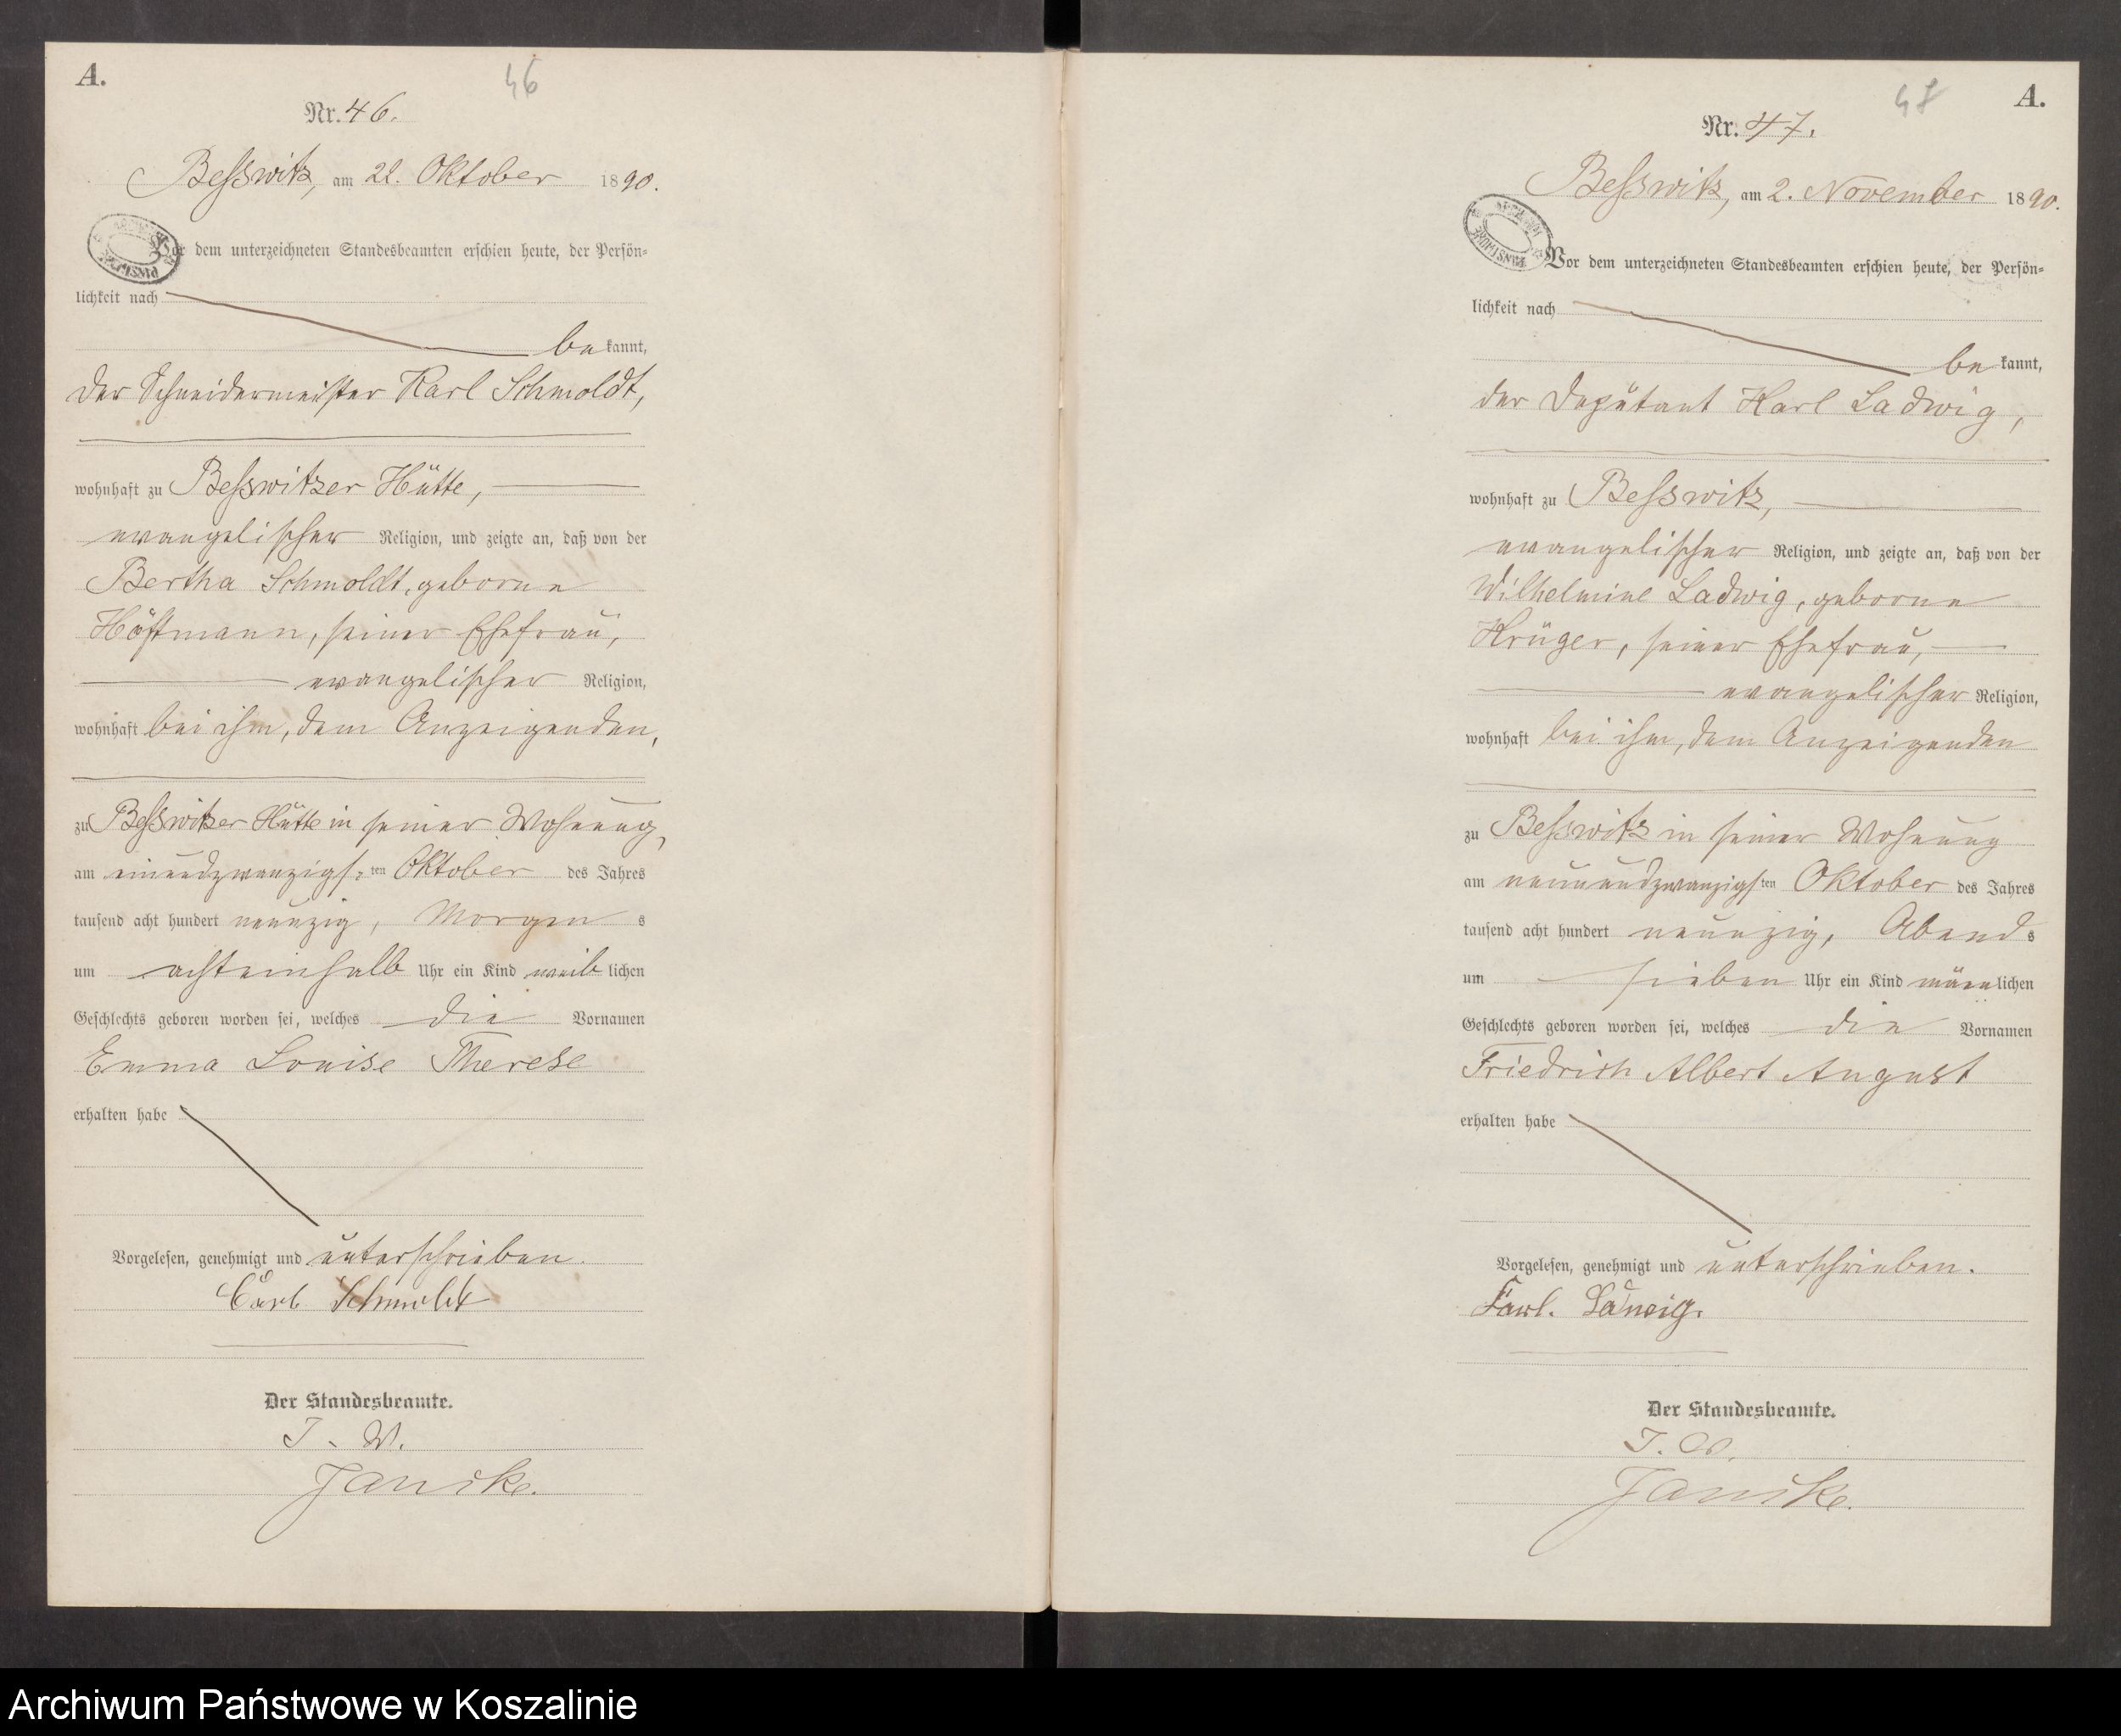 A.
46
Nr. 46.
Beßswitz, am 22. Oktober 1890.
Vor dem unterzeichneten Standesbeamten erschien heute, der Persön-
lichkeit nach
be kannt,
der Schneidermeister Karl Schmoldt,
wohnhaft zu Beßswitzer Hütte,
evangelischer Religion, und zeigte an, daß von der
Bertha Schmoldt, geborne
Höftmann, seiner Ehefrau,
evangelischer Religion,
wohnhaft bei ihm, dem Anzeigenden,
zu Beßswitzer Hütte in seiner Wohnung,
am einundzwanzigs-ten Oktober des Jahres
tausend acht hundert neunzig, Morgen s
um achteinhalb Uhr ein Kind weib lichen
Geschlechts geboren worden sei, welches die Vornamen
Emma Louise Therese
erhalten habe
Vorgelesen, genehmigt und unterschrieben.
Carl Schmoldt
Der Standesbeamte.
J. V.
Janike.
47
A.
Nr. 47.
Beßswitz, am 2. November 1890.
Vor dem unterzeichneten Standesbeamten erschien heute, der Persön-
lichkeit nach
be kannt,
der Deputant Karl Ladwig,
wohnhaft zu Beßswitz,
evangelischer Religion, und zeigte an, daß von der
Wilhelmine Ladwig, geborne
Krüger, seiner Ehefrau,
evangelischer Religion,
wohnhaft bei ihm, dem Anzeigenden
zu Beßswitz in seiner Wohnung
am neunundzwanzigsten Oktober des Jahres
tausend acht hundert neunzig, Abend s
um sieben Uhr ein Kind männlichen
Geschlechts geboren worden sei, welches die Vornamen
Friedrich Albert August
erhalten habe
Vorgelesen, genehmigt und unterschrieben.
Karl. Ladwig.
Der Standesbeamte.
J. V.
Janike.
Archiwum Państwowe w Koszalinie